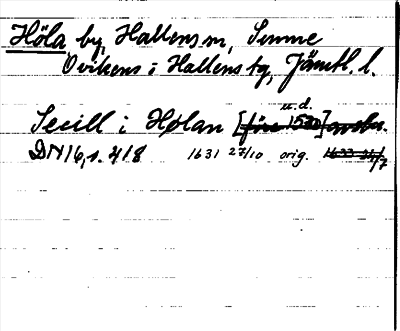 Höla by, Hallens sn, Sunne
Ovikens i Hallens tg, Jämtl. l.
u.d.
Secill i Hølan [före 1530] avskr.
DN 16, s. 418 1631 27/10 orig. 1633 21/7